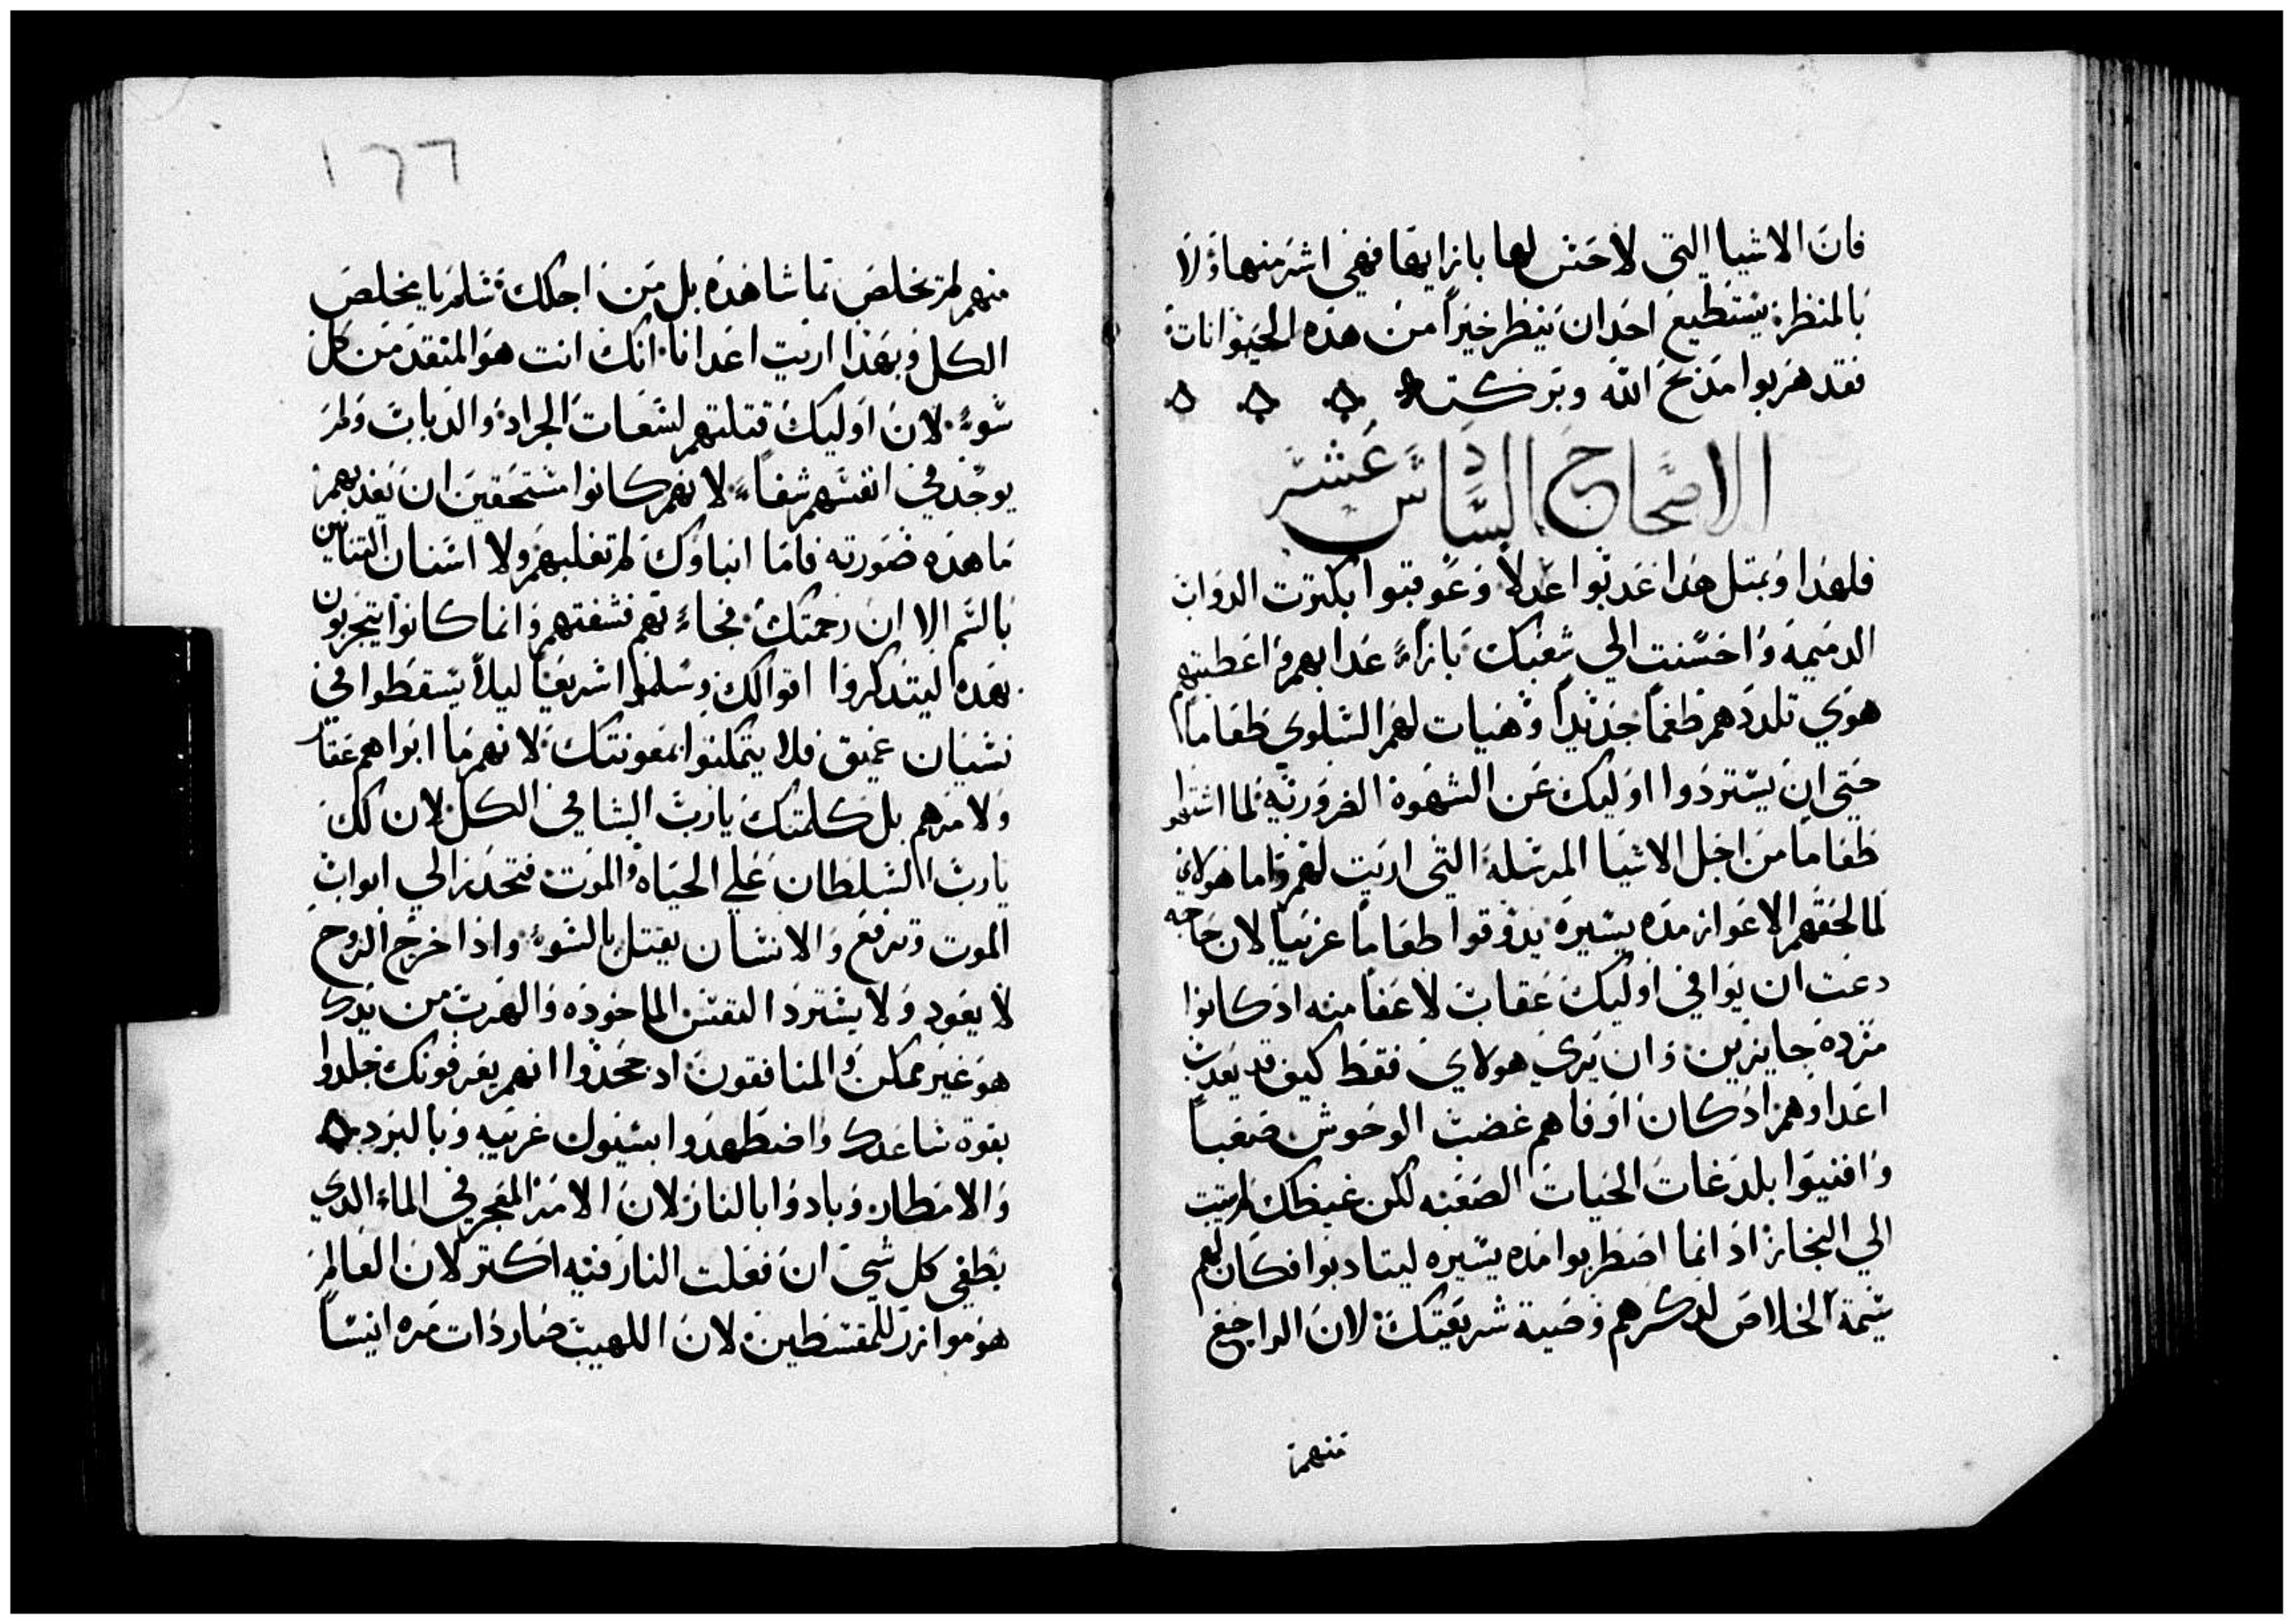 فان الاشيا التي لا حس لها بازايها فهي اشر منها ولا
بالمنظر يستطيع احد ان ينظر خيراً من هذه الحيوانات
فقد هربوا مدبح الله وبركته
الاصحاح السادس عشر
فلهدا وبمتل هدا عدبوا عدلاً وعوقبوا بكترت الدواب
الدميمه واحسنت الي شعبك بازاء عدابهم واعطيتهم
هوي تلددهم طعماً جديداً وهيات لهم السلوي طعاماً
حتي ان يستردوا اوليك عن الشهوة الضروريه لما اشتهوا
طعاماً من اجل الاشيا المرسله التي اريت لهم واما هولاي
لما لحقهم الاعواز مده يسيره يدوقوا طعاماً غريباً لان حاجه
دعت ان يوافي اوليك عقاب لا عفا منه اد كانوا
مرده جايزين وان يري هولاي فقط كيف قد يعدب
اعداوهم اد كان اوفاهم غضب الوحوش صعباً
وافنيوا بلدغات الحيات الصعبه لكن غيظك لم يتبت
الي النجاز اد انما اضطربوا مده يسيره ليتادبوا فكان لهم
سيمة الخلاص لدكرهم وصية شريعتك لان الراجع
منهم
١٦٦
منهم لم يخلص بما شاهده بل من اجلك تسلم يا مخلص
الكل وبهدا اريت اعدانا انك انت هو المنقد من كل
سوء لان اوليك قتلتهم لسعات الجراد والدباب ولم
يوجد في انفسهم شفاء لانهم كانوا مستحقين ان يعدبهم
ما هده صورته فاما ابناوك لم تغلبهم ولا اسنان التنانين
بالسم الا ان رحمتك فجاء بهم فشفتهم وانما كانوا يتجربون
بهده ليتدكروا اقوالك وسلموا سريعاً ليلا يسقطوا في
نسيان عميق فلا يتمكنوا بمعونتك لانهم ما ابراهم عقار
ولا مرهم بل كلمتك يارب الشافي الكل لان لك
يارب السلطان علي الحياه والموت فتحدر الي ابواب
الموت وترفع والانسان يقتل بالسوء وادا خرج الروح
لا يعود ولا يسترد النفس الماخوده والهرب من يدك
هو غير ممكن والمنافقون اد جحدوا انهم يعرفونك جلدوا
بقوة ساعدك واضطهدوا بسيول غريبه وبالبرد
والامطار وبادوا بالنار لان الامر المعجز في الماء الدي
يطفي كل شي ان فعلت النار فيه اكتر لان العالم
هو موازر للمقسطين لان اللهيب صار دات مره انيساً